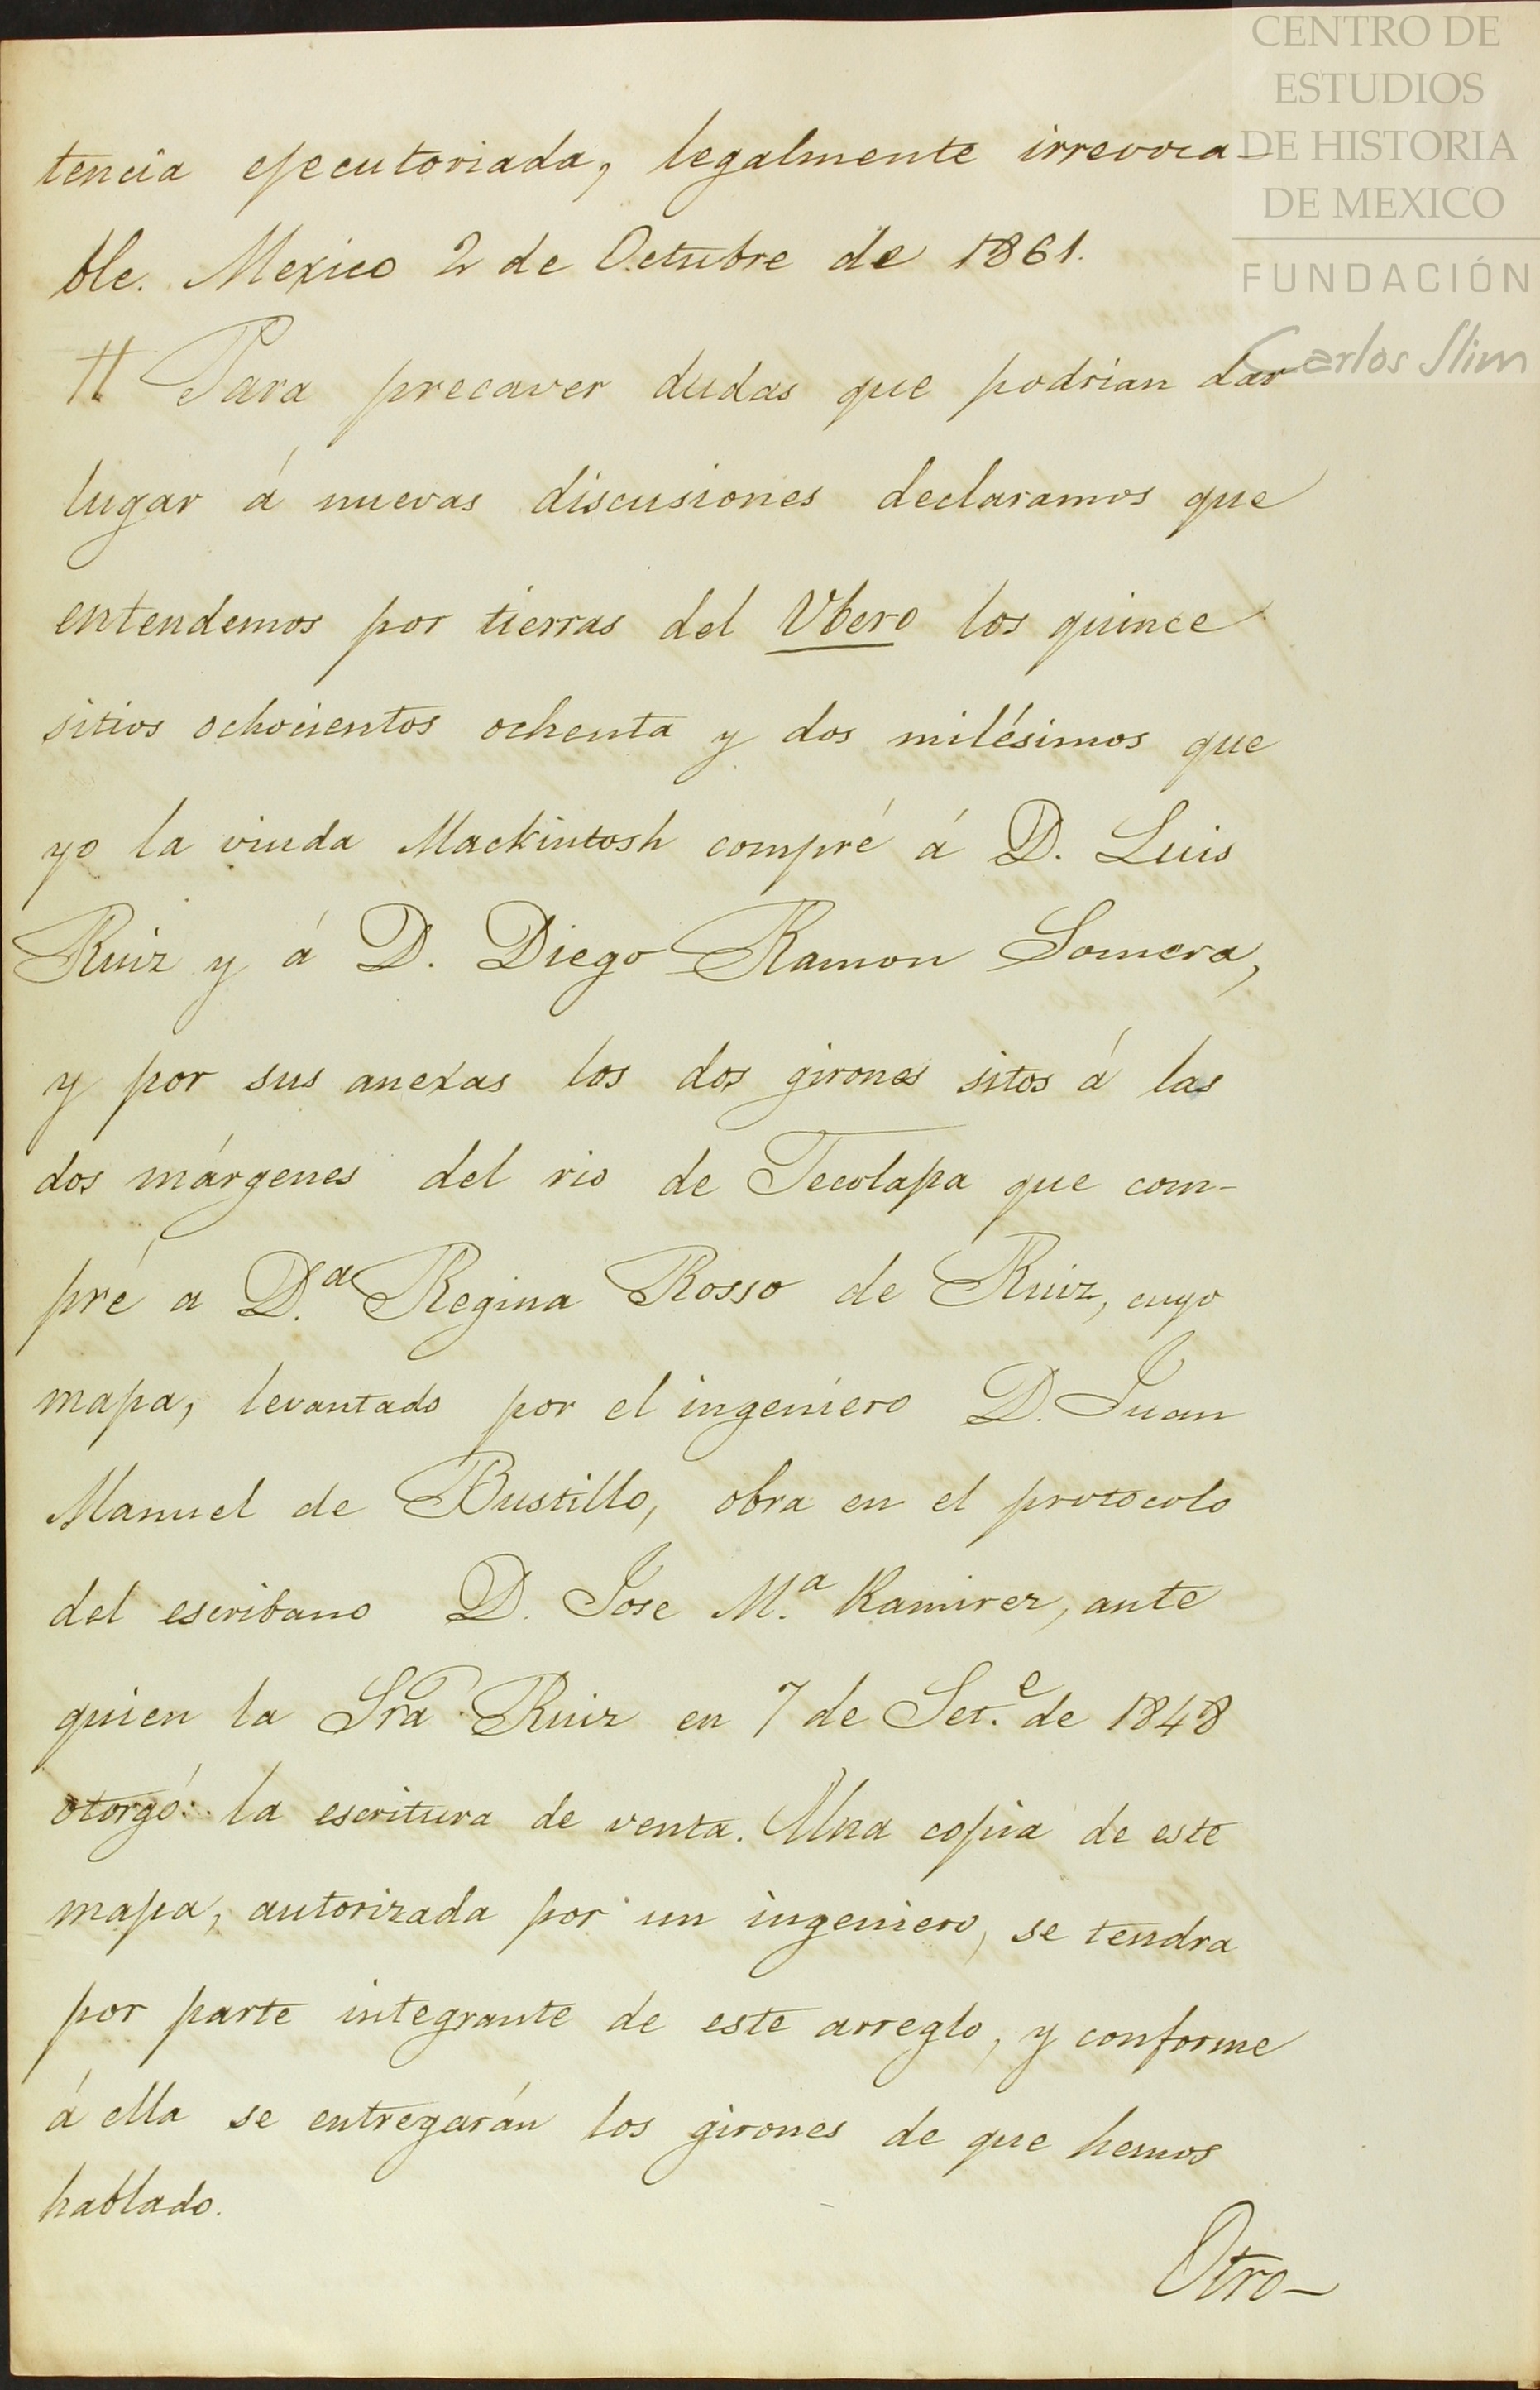 CENTRO DE
ESTUDIOS
DE HISTORIA
DE MEXICO
FUNDACIÓN
Carlos Slim
tencia ejecutoriada, legalmente irrevoca-
ble. Mexico 2 de Octubre de 1861.
H Para precaver dudas que podrian dar
lugar á nuevas discusiones declaramos que
entendemos por tierras del Vbero los quince
sitios ochocientos ochenta y dos milésimos que
yo la viuda Mackintosh compré á D. Luis
Ruiz y á D. Diego Ramon Somera,
y por sus anexas los dos girones sitos á las
dos márgenes del rio de Tecolapa que com-
pré a D.ª Regina Rosso de Ruiz, cuyo
mapa, levantado por el ingeniero D. Juan
Manuel de Bustillo, obra en el protocolo
del escribano D. Jose M.ª Ramirez, ante
quien la Sra Ruiz en 7 de Set.e de 1848
otorgó la escritura de venta. Una copia de este
mapa, autorizada por un ingeniero, se tendra
por parte integrante de este arreglo, y conforme
á ella se entregarán los girones de que hemos
hablado.
Otro-